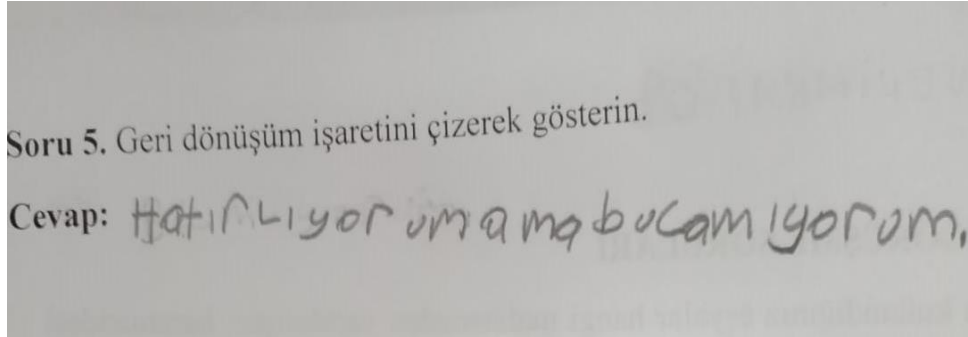 Soru 5. Geri dönüşüm işaretini çizerek gösterin.
Cevap: Hatırlıyorum ama bucamıyorum.